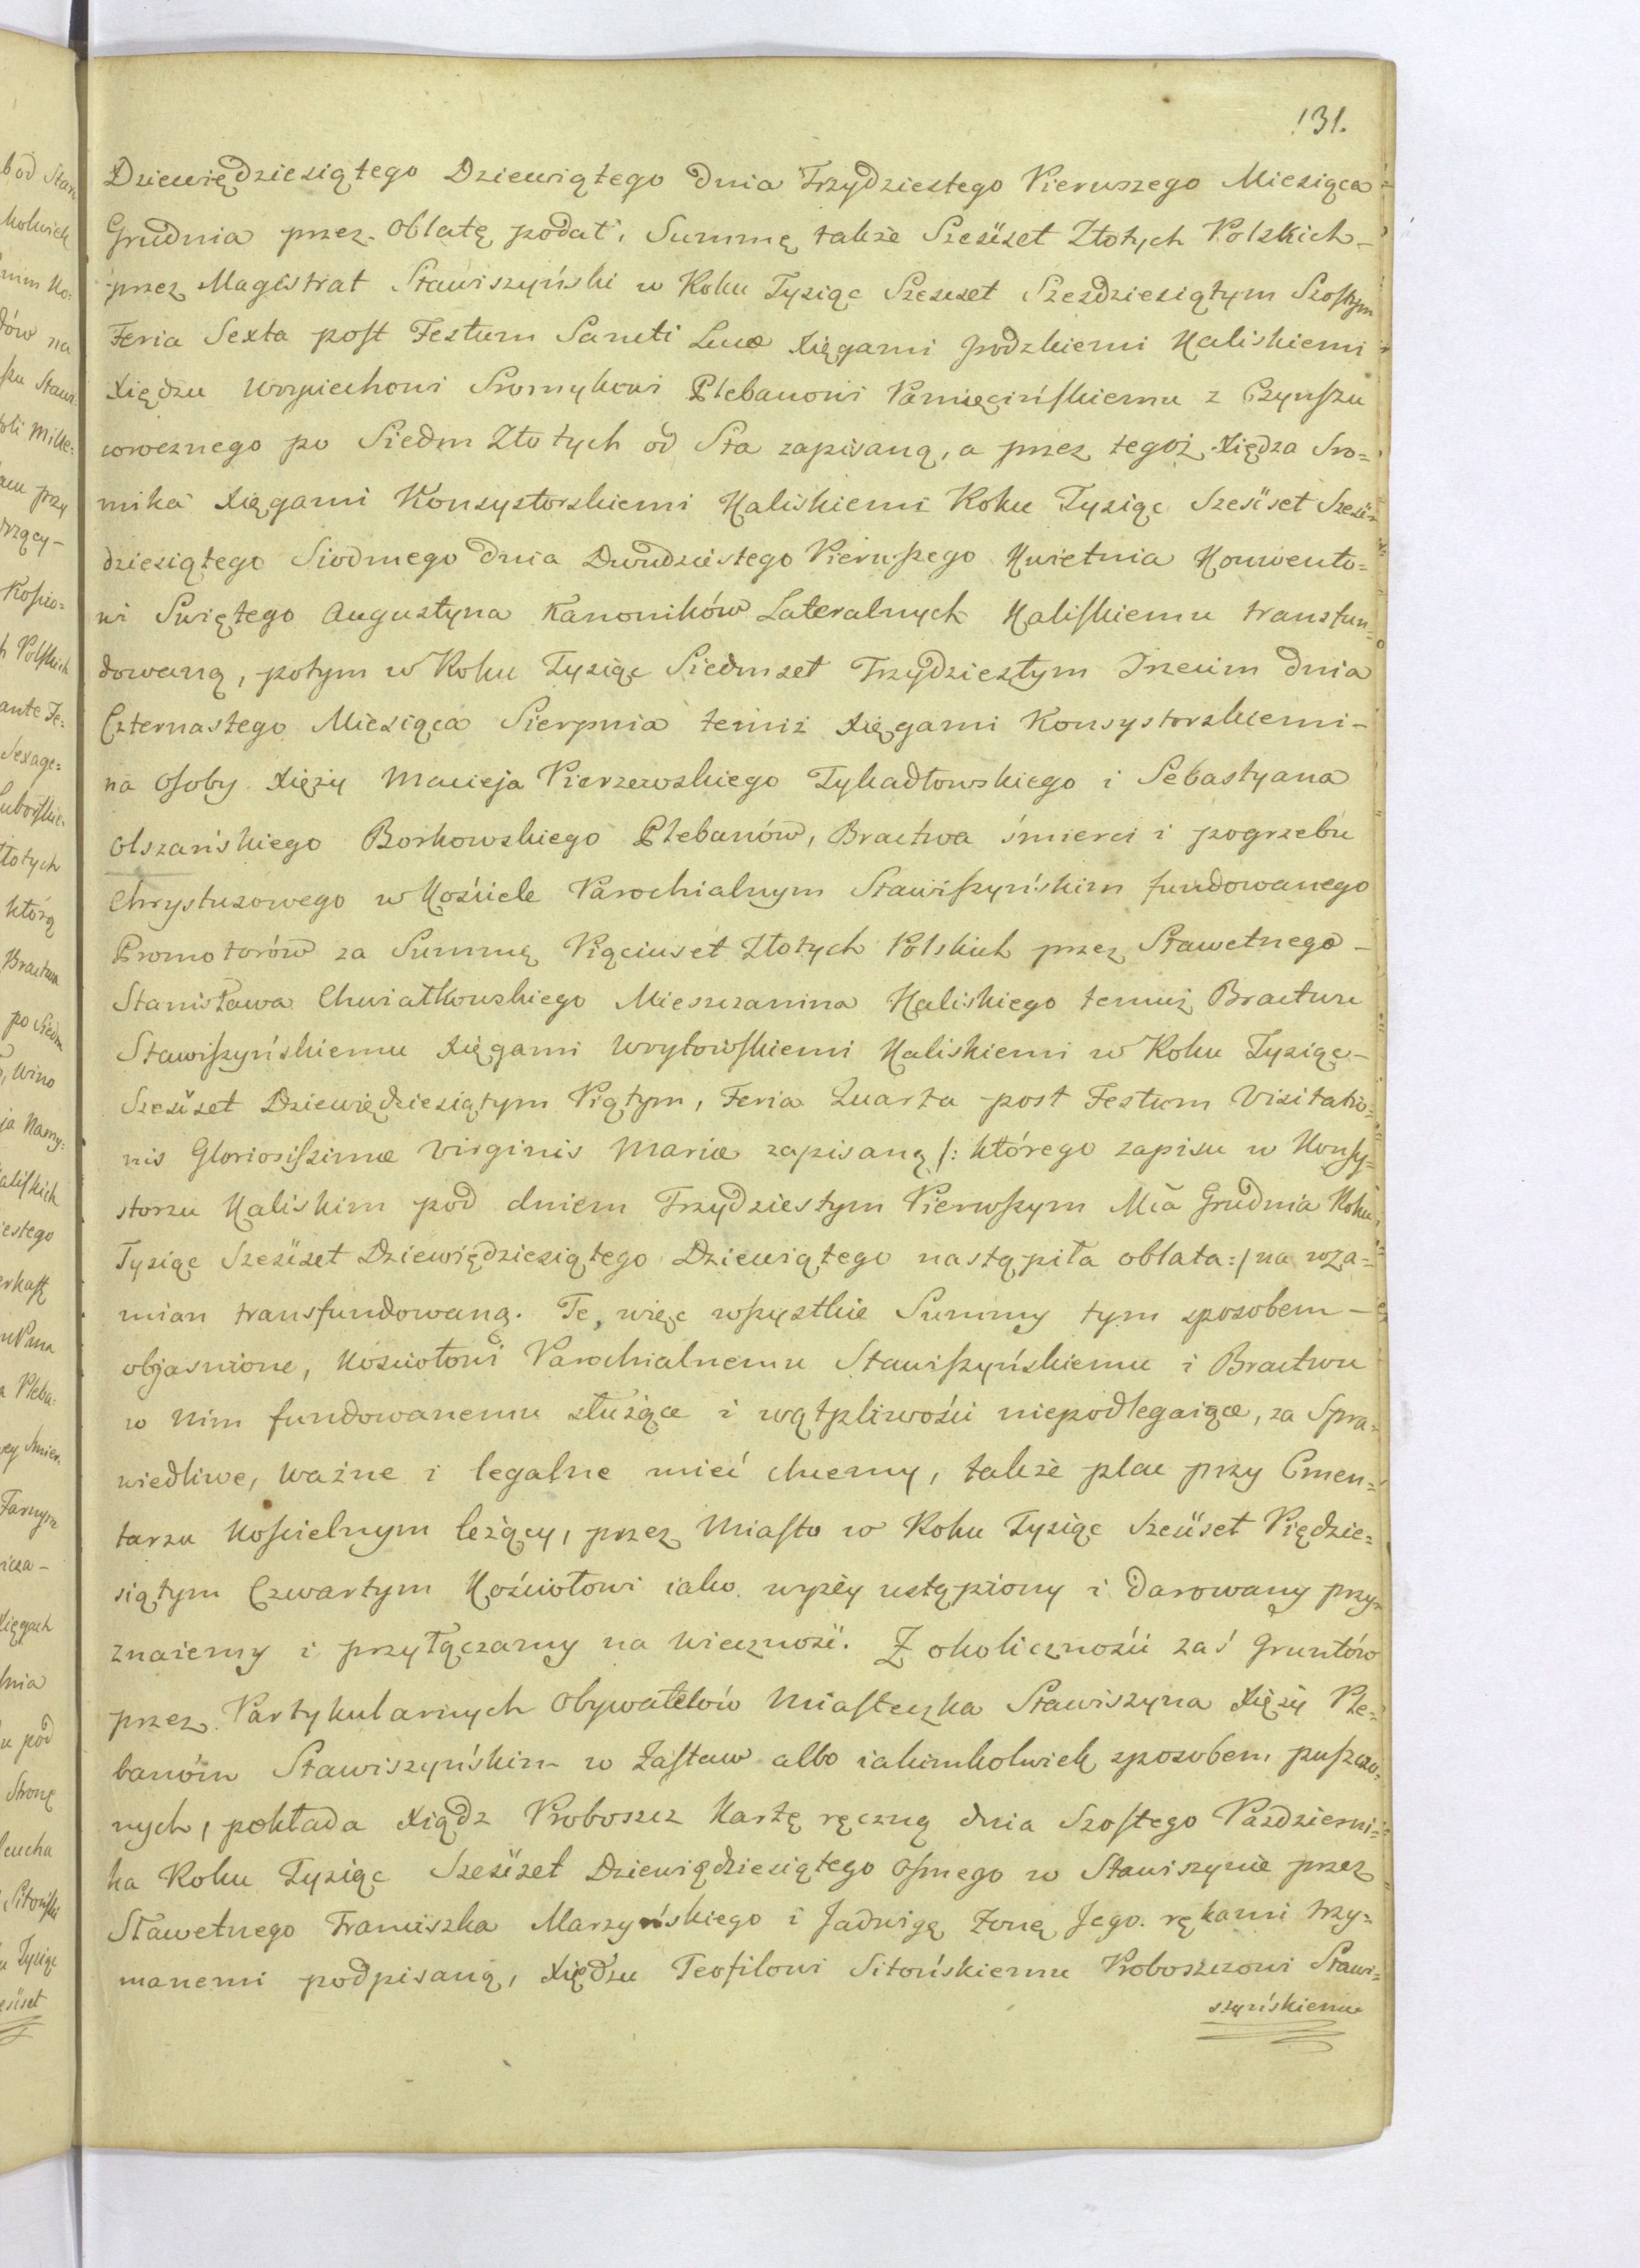 131.
Dziewiędziesiątego Dziewiątego dnia Trzydziestego Pierwszego Miesiąca
Grudnia przez Oblatę podał, Summę także Sześćset Złotych Polskich
przez Magistrat Stawiszyński w Roku Tysiąc Szescset Szesdziesiątym Szostym
Feria Sexta post Festum Sancti Lucæ Xięgami Grodzkiemi Kaliskiemi
Xiędzu Woyciechowi Sromykowi Plebanowi Pamięcińskiemu z Czynszu
corocznego po Siedm Złotych od Sta zapisaną, a przez tegoż Xiędza Sro=
mika Xięgami Konsystorskiemi Kaliskiemi Roku Tysiąc Sześćset Sześć=
dziesiątego Siodmego dnia Dwudziestego Pierwszego Kwietnia Konwento=
wi Swiętego Augustyna Kanoników Lateralnych Kaliskiemu transfun=
dowaną, potym w Roku Tysiąc Siedmset Trzydziestym Trzecim dnia
Czternastego Miesiąca Sierpnia temiż Xięgami Konsystorskiemi –
na Osoby Xięży Macieja Pierzewskiego Tykadłowskiego i Sebastyana
Olszańskiego Borkowskiego Plebanów, Bractwa śmierci i pogrzebu
Chrystusowego w Kościele Parochialnym Stawiszyńskim fundowanego
Promotorów za Summę Pięciuset Złotych Polskich przez Sławetnego –
Stanisława Chwiałkowskiego Mieszczanina Kaliskiego temuż Bractwu
Stawiszyńskiemu Xięgami Woytowskiemi Kaliskiemi w Roku Tysiąc –
Sześćset Dziewiędziesiątym Piątym, Feria Quarta post Festum Visitatio=
nis Gloriosissimæ Virginis Mariæ zapisaną /: którego zapisu w Konsy=
storzu Kaliskim pod dniem Trzydziestym Pierwszym Mca Grudnia Roku
Tysiąc Sześćset Dziewiędziesiątego Dziewiątego nastąpiła oblata :/ na wza=
mian transfundowaną. Te, więc wszystkie Summy tym sposobem –
objasnione, Kościołowi Parochialnemu Stawiszyńskiemu i Bractwu
w Nim fundowanemu służące i wątpliwości niepodlegaiące, za Spra=
wiedliwe, ważne i legalne mieć chcemy, także plac przy Cmen=
tarzu Koscielnym leżący, przez Miasto w Roku Tysiąc Sześćset Piędzie=
siątym Czwartym Kościołowi iako wyżey ustąpiony i darowany przy=
znaiemy i przyłączamy na wieczność. Z okoliczności zaś Gruntów
przez Partykularnych Obywatelów Miasteczka Stawiszyna Xięży Ple=
banóm Stawiszyńskim w Zastaw albo iakimkolwiek sposobem puszczo=
nych, pokłada Xiądz Proboszcz Kartę ręczną dnia Szostego Październi=
ka Roku Tysiąc Sześćset Dziewiędziesiątego Osmego w Stawiszynie przez
Sławetnego Franciszka Marzyńskiego i Jadwigę Żonę Jego rękami trzy=
manemi podpisaną, Xiędzu Teofilowi Sitońskiemu Proboszczowi Stawi=
szyńskiemu